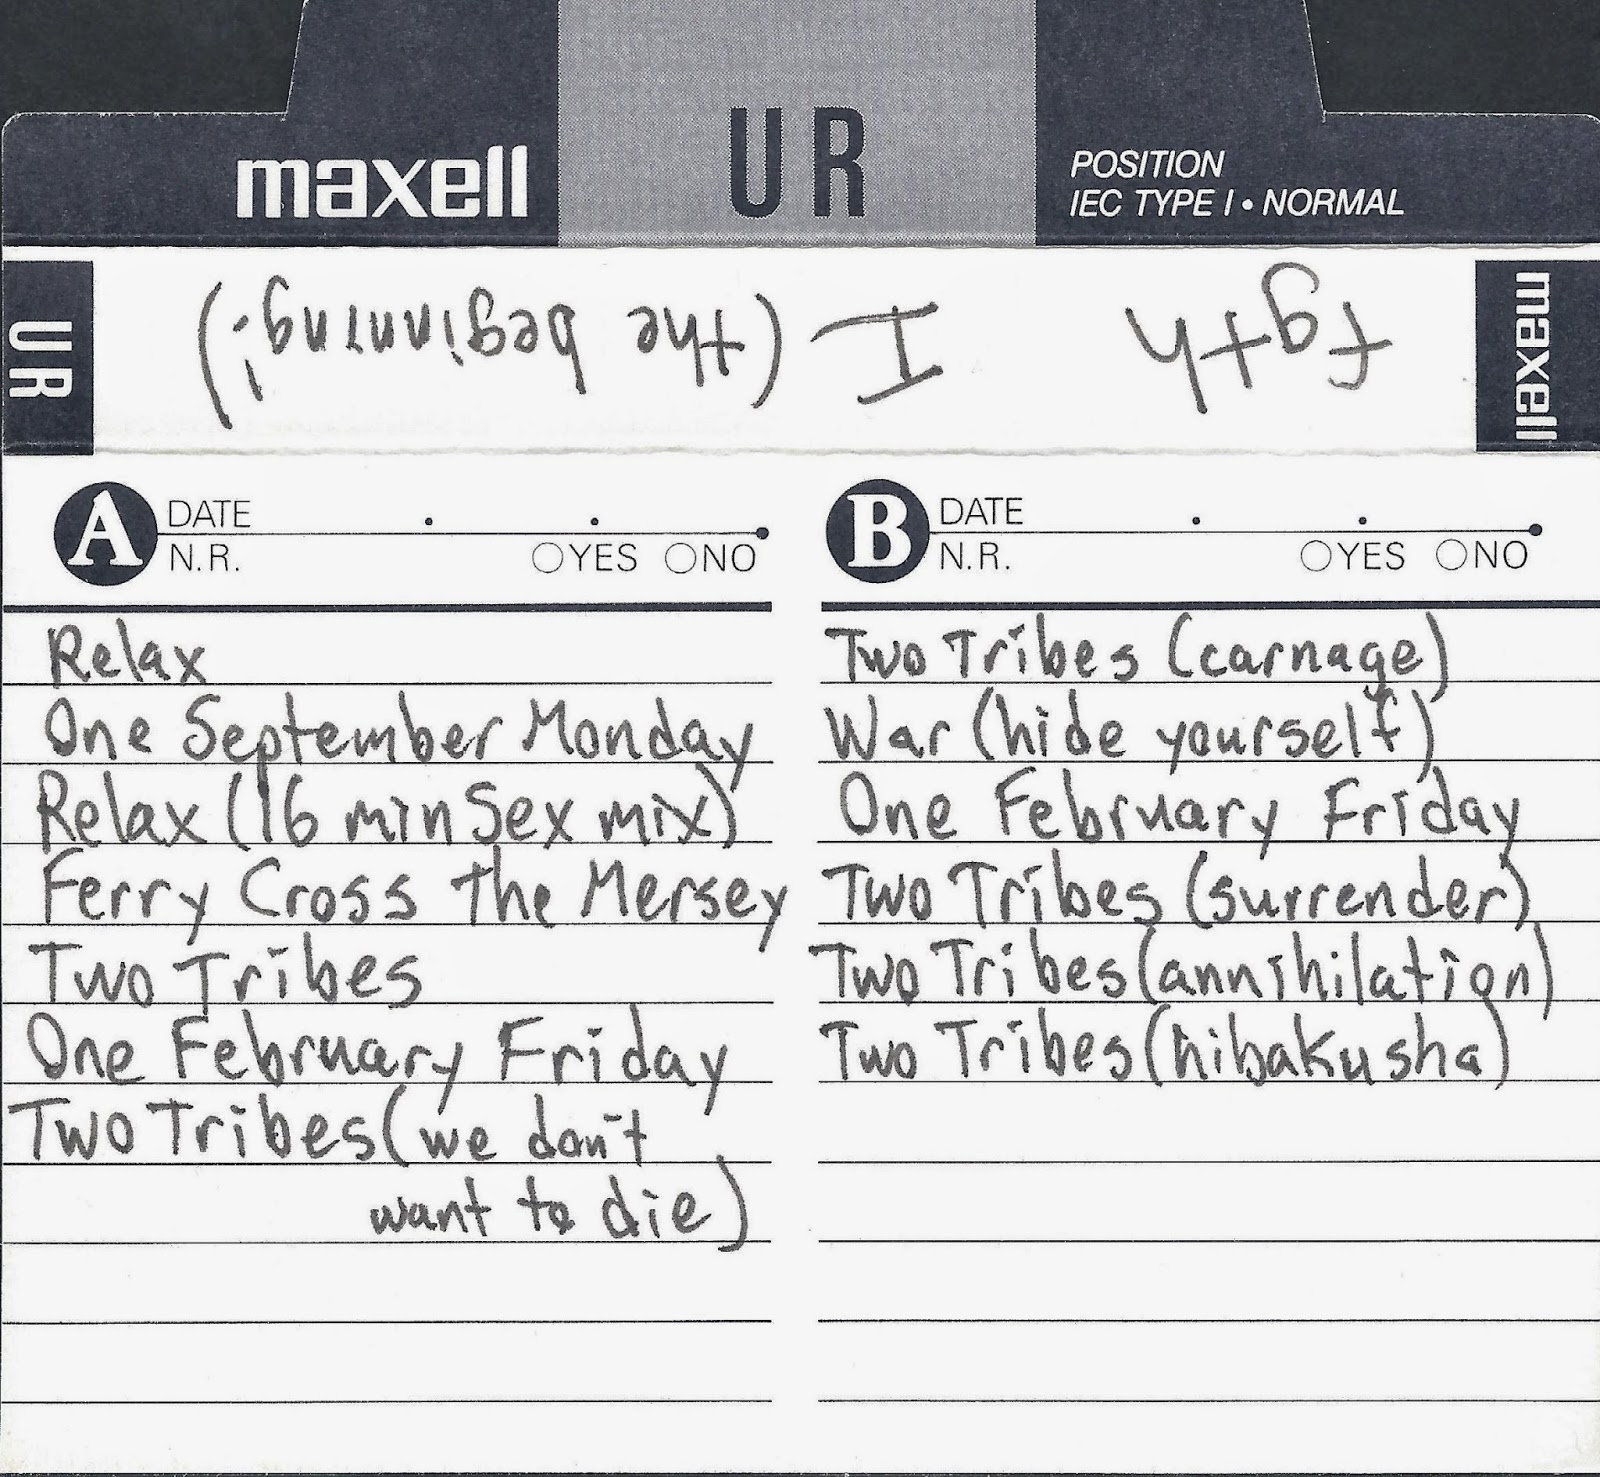 maxell
UR
POSITION
IEC TYPE I • NORMAL
UR
fgth I (the beginning;)
maxell
A DATE
N.R. ○YES ○NO
Relax
One September Monday
Relax (16 min Sex mix)
Ferry Cross the Mersey
Two Tribes
One February Friday
Two Tribes (we don't
want to die)
B DATE
N.R. ○YES ○NO
Two Tribes (carnage)
War (hide yourself)
One February Friday
Two Tribes (surrender)
Two Tribes (annihilation)
Two Tribes (hibakusha)